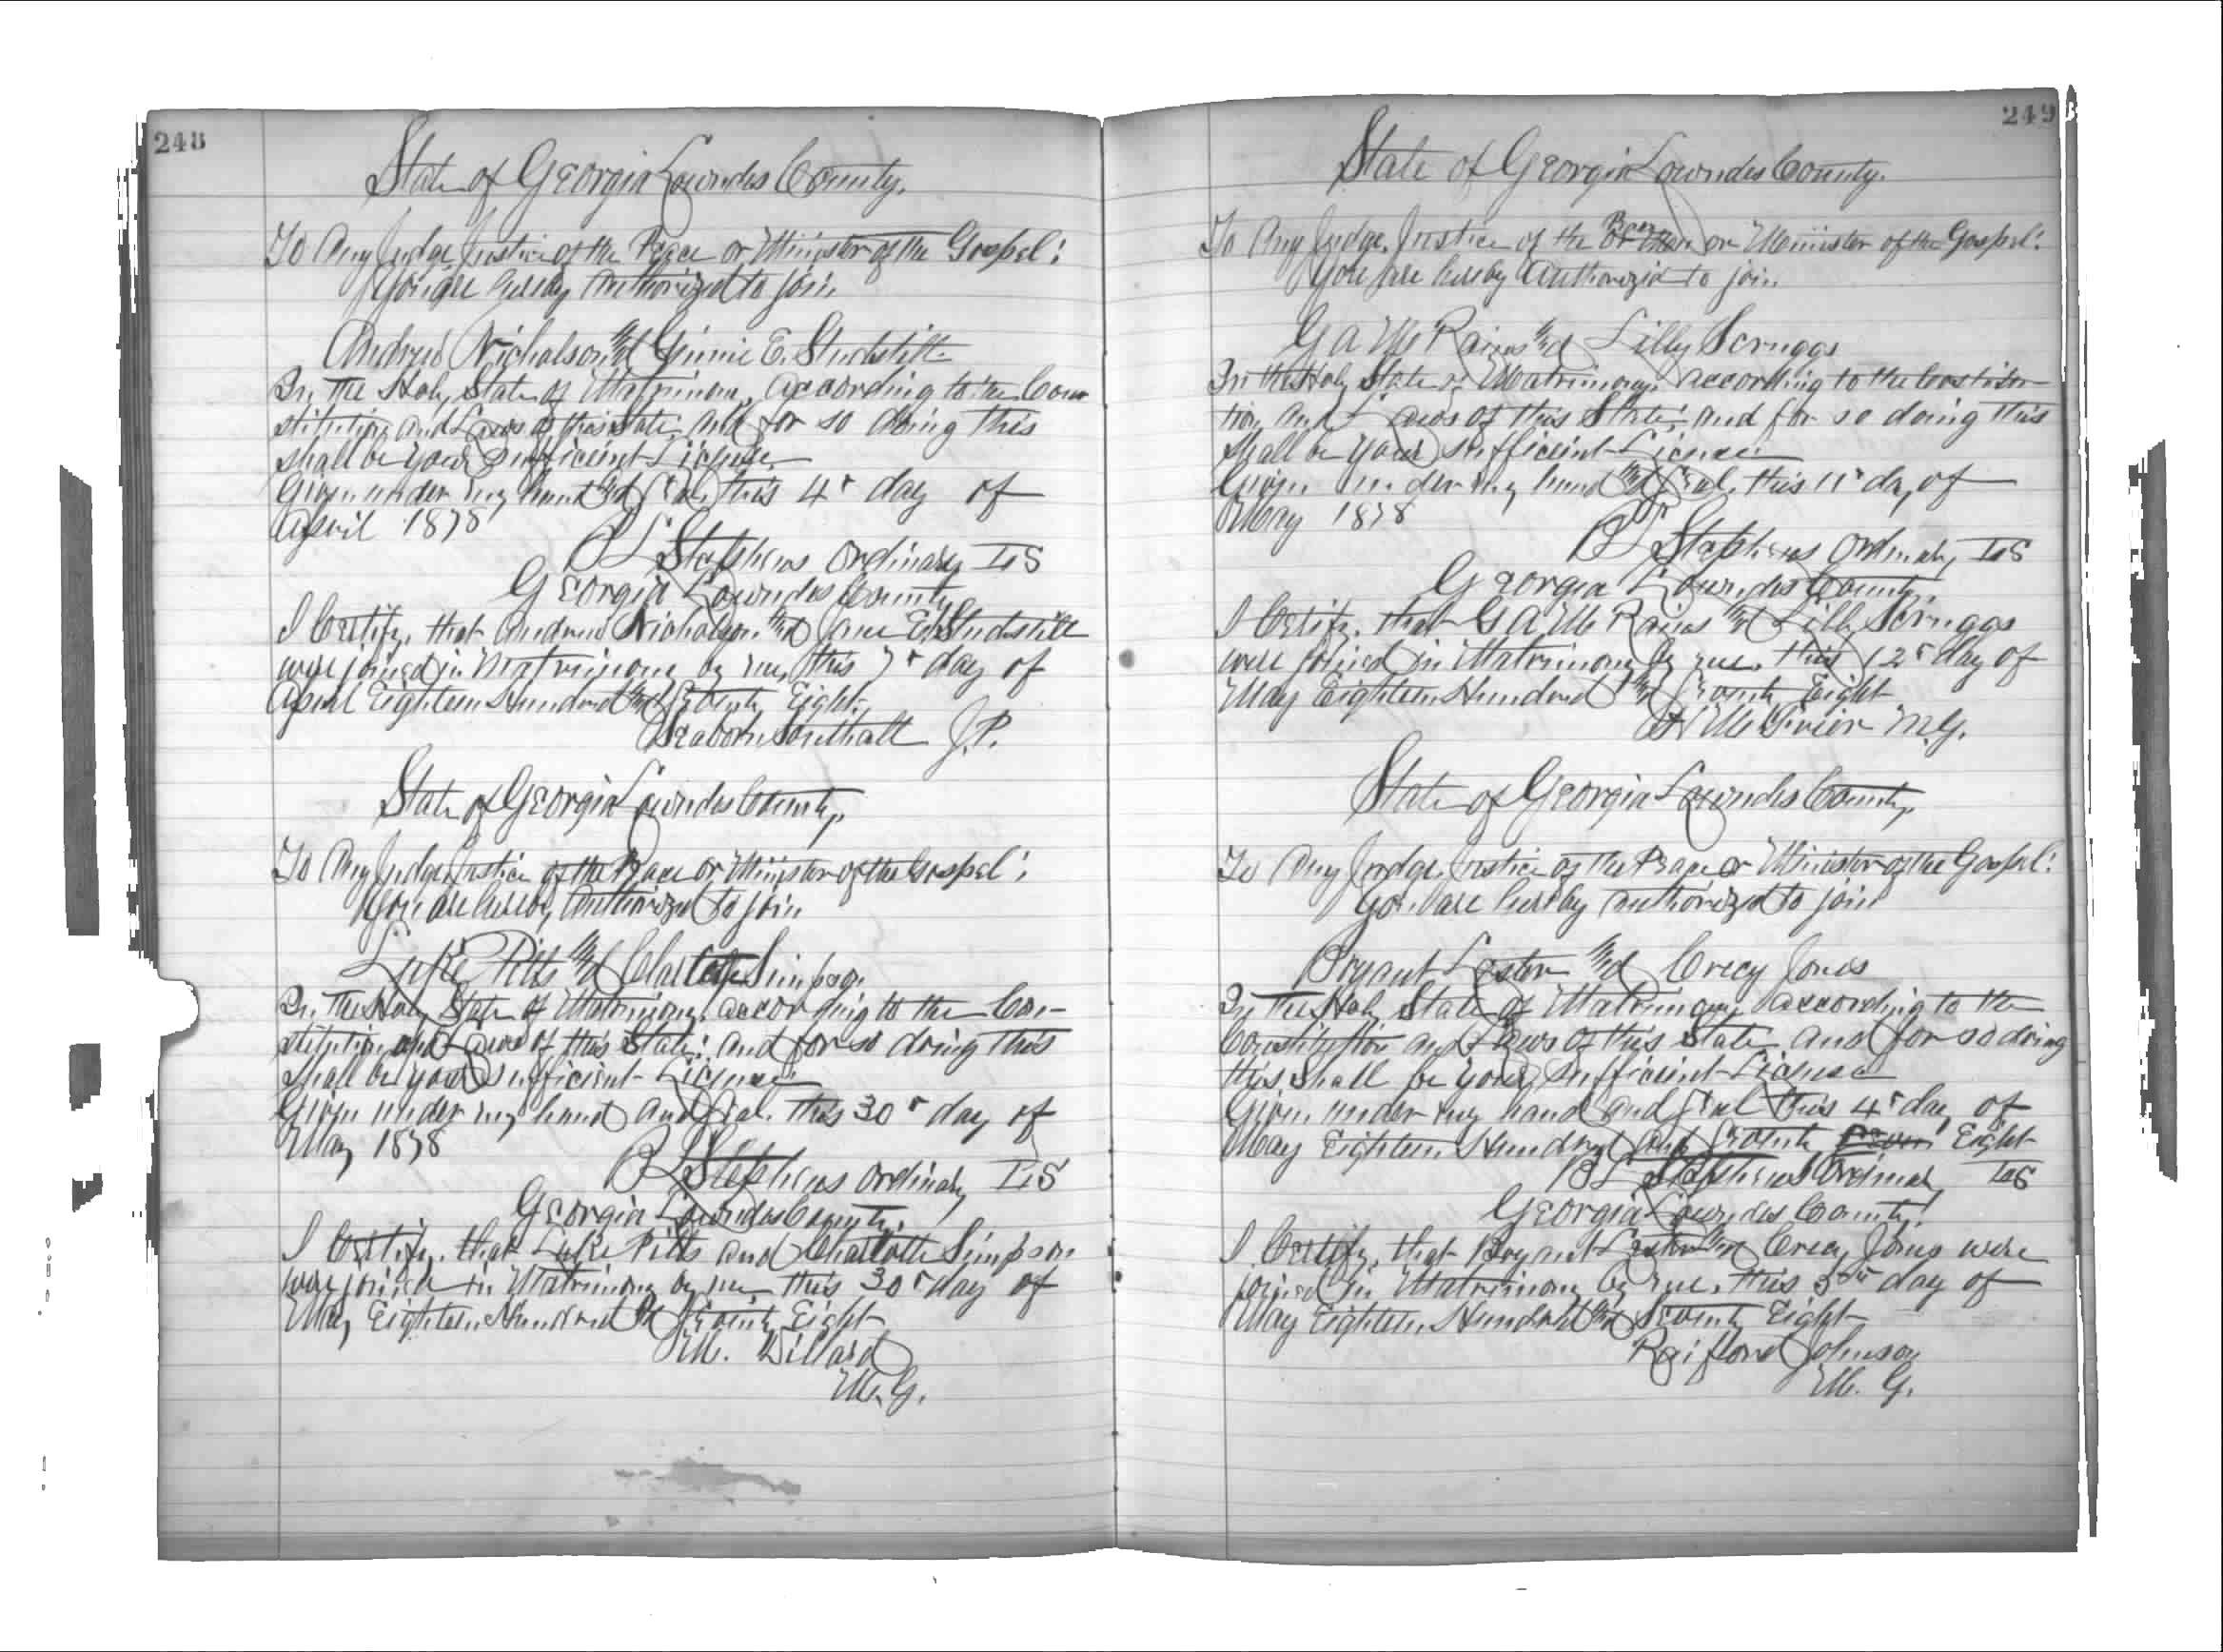 248
State of Georgia Lowndes County.
To Any Judge Justice of the Peace or Minister of the Gospel:
You are hereby Authorized to join
Andrew Nicholson and E. Studstill
In The Holy State of Matrimony, according to the Con
stitution and Laws of this State and for so doing this
shall be your Sufficient License
Given under my hand and Seal, this 4" day of
April 1878
B L Stephens Ordinary L S
Georgia Lowndes County
I Certify, that Andrew Nicholson and Jane E. Studstill
were joined in Matrimony by me, this 7" day of
April Eighteen Hundred and Seventy Eight
Seaborn Southall J.P.
State of Georgia Lowndes County,
To Any Judge, Justice of the Peace or Minister of the Gospel:
You are hereby Authorized to join
Luke Pitts and Charlotte Simpson
In The Holy State of Matrimony, according to the Con-
stitution and Laws of this State; and for so doing this
shall be your sufficient License
Given under my hand and Seal. this 30" day of
May 1878
B L Stephens Ordinary L S
Georgia Lowndes County.
I Certify, that Luke Pitts and Charlotte Simpson
were joined in Matrimony by me this 30" day of
May Eighteen Hundred and Seventy Eight
M. Dillard
M. G.
249
State of Georgia Lowndes County.
Peace
To Any Judge, Justice of the or Minister of the Gospel:
You are hereby Authorized to join
G A M Raines and Lilly Scruggs
In the Holy State of Matrimony, according to the Constitu
tion and Laws of this State; and for so doing this
shall be your sufficient License
Given under my hand and Seal, this 11" day of
May 1878
B L Stephens Ordinary L S
Georgia Lowndes County.
I Certify, that G A M Raines and Lilly Scruggs
were joined in Matrimony by me, this 12" day of
May Eighteen Hundred and Seventy Eight
M.G.
State of Georgia Lowndes County,
To Any Judge, Justice of the Peace or Minister of the Gospel:
You are hereby authorized to join
Bryant Lester and Crecy Jones
In The Holy State of Matrimony according to the
Constitution and Laws of this State and for so doing
this, shall be your Sufficient License
Given under my hand and Seal this 4" day of
May Eighteen Hundred and Seventy Seven Eight
B L Stephens Ordinary L S
Georgia Lowndes County.
I Certify, that Bryant Lester and Crecy Jones were
joined in Matrimony by me, this 5th day of
May Eighteen Hundred and Seventy Eight
Raiford Johnson
M. G.